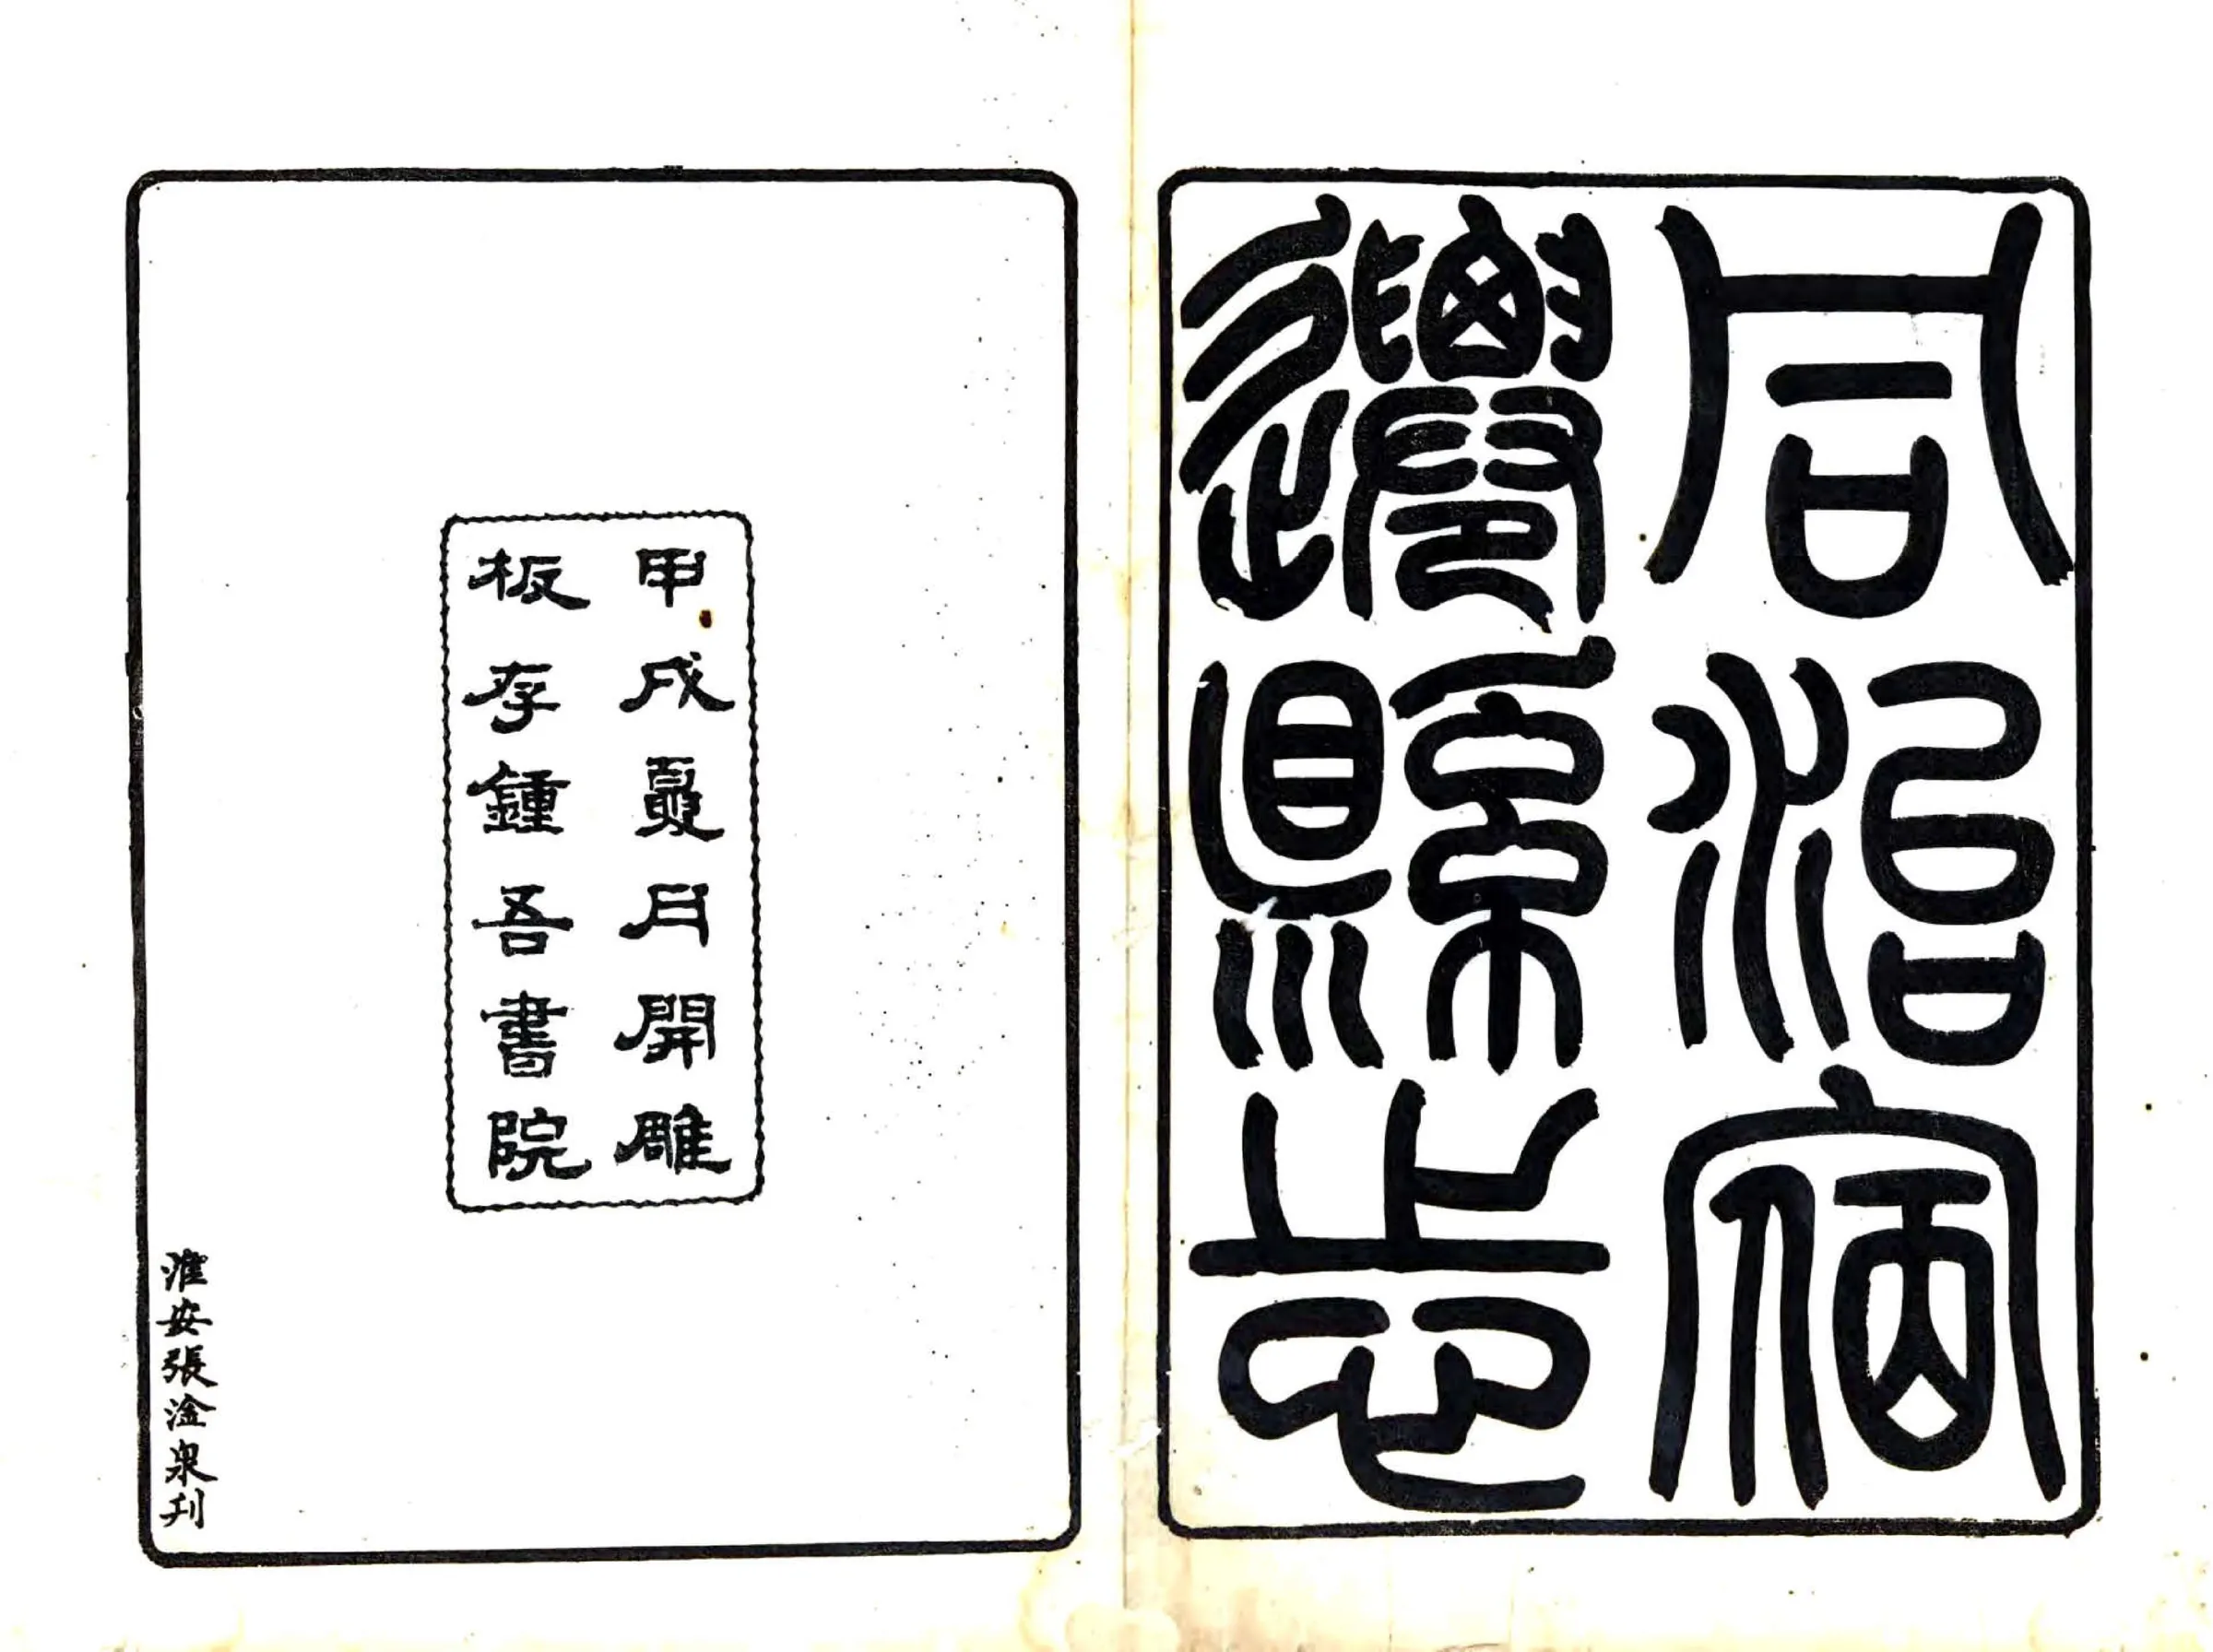 同治宿
遷縣志
甲戌夏月開雕
板存鍾吾書院
淮安張淦泉刋